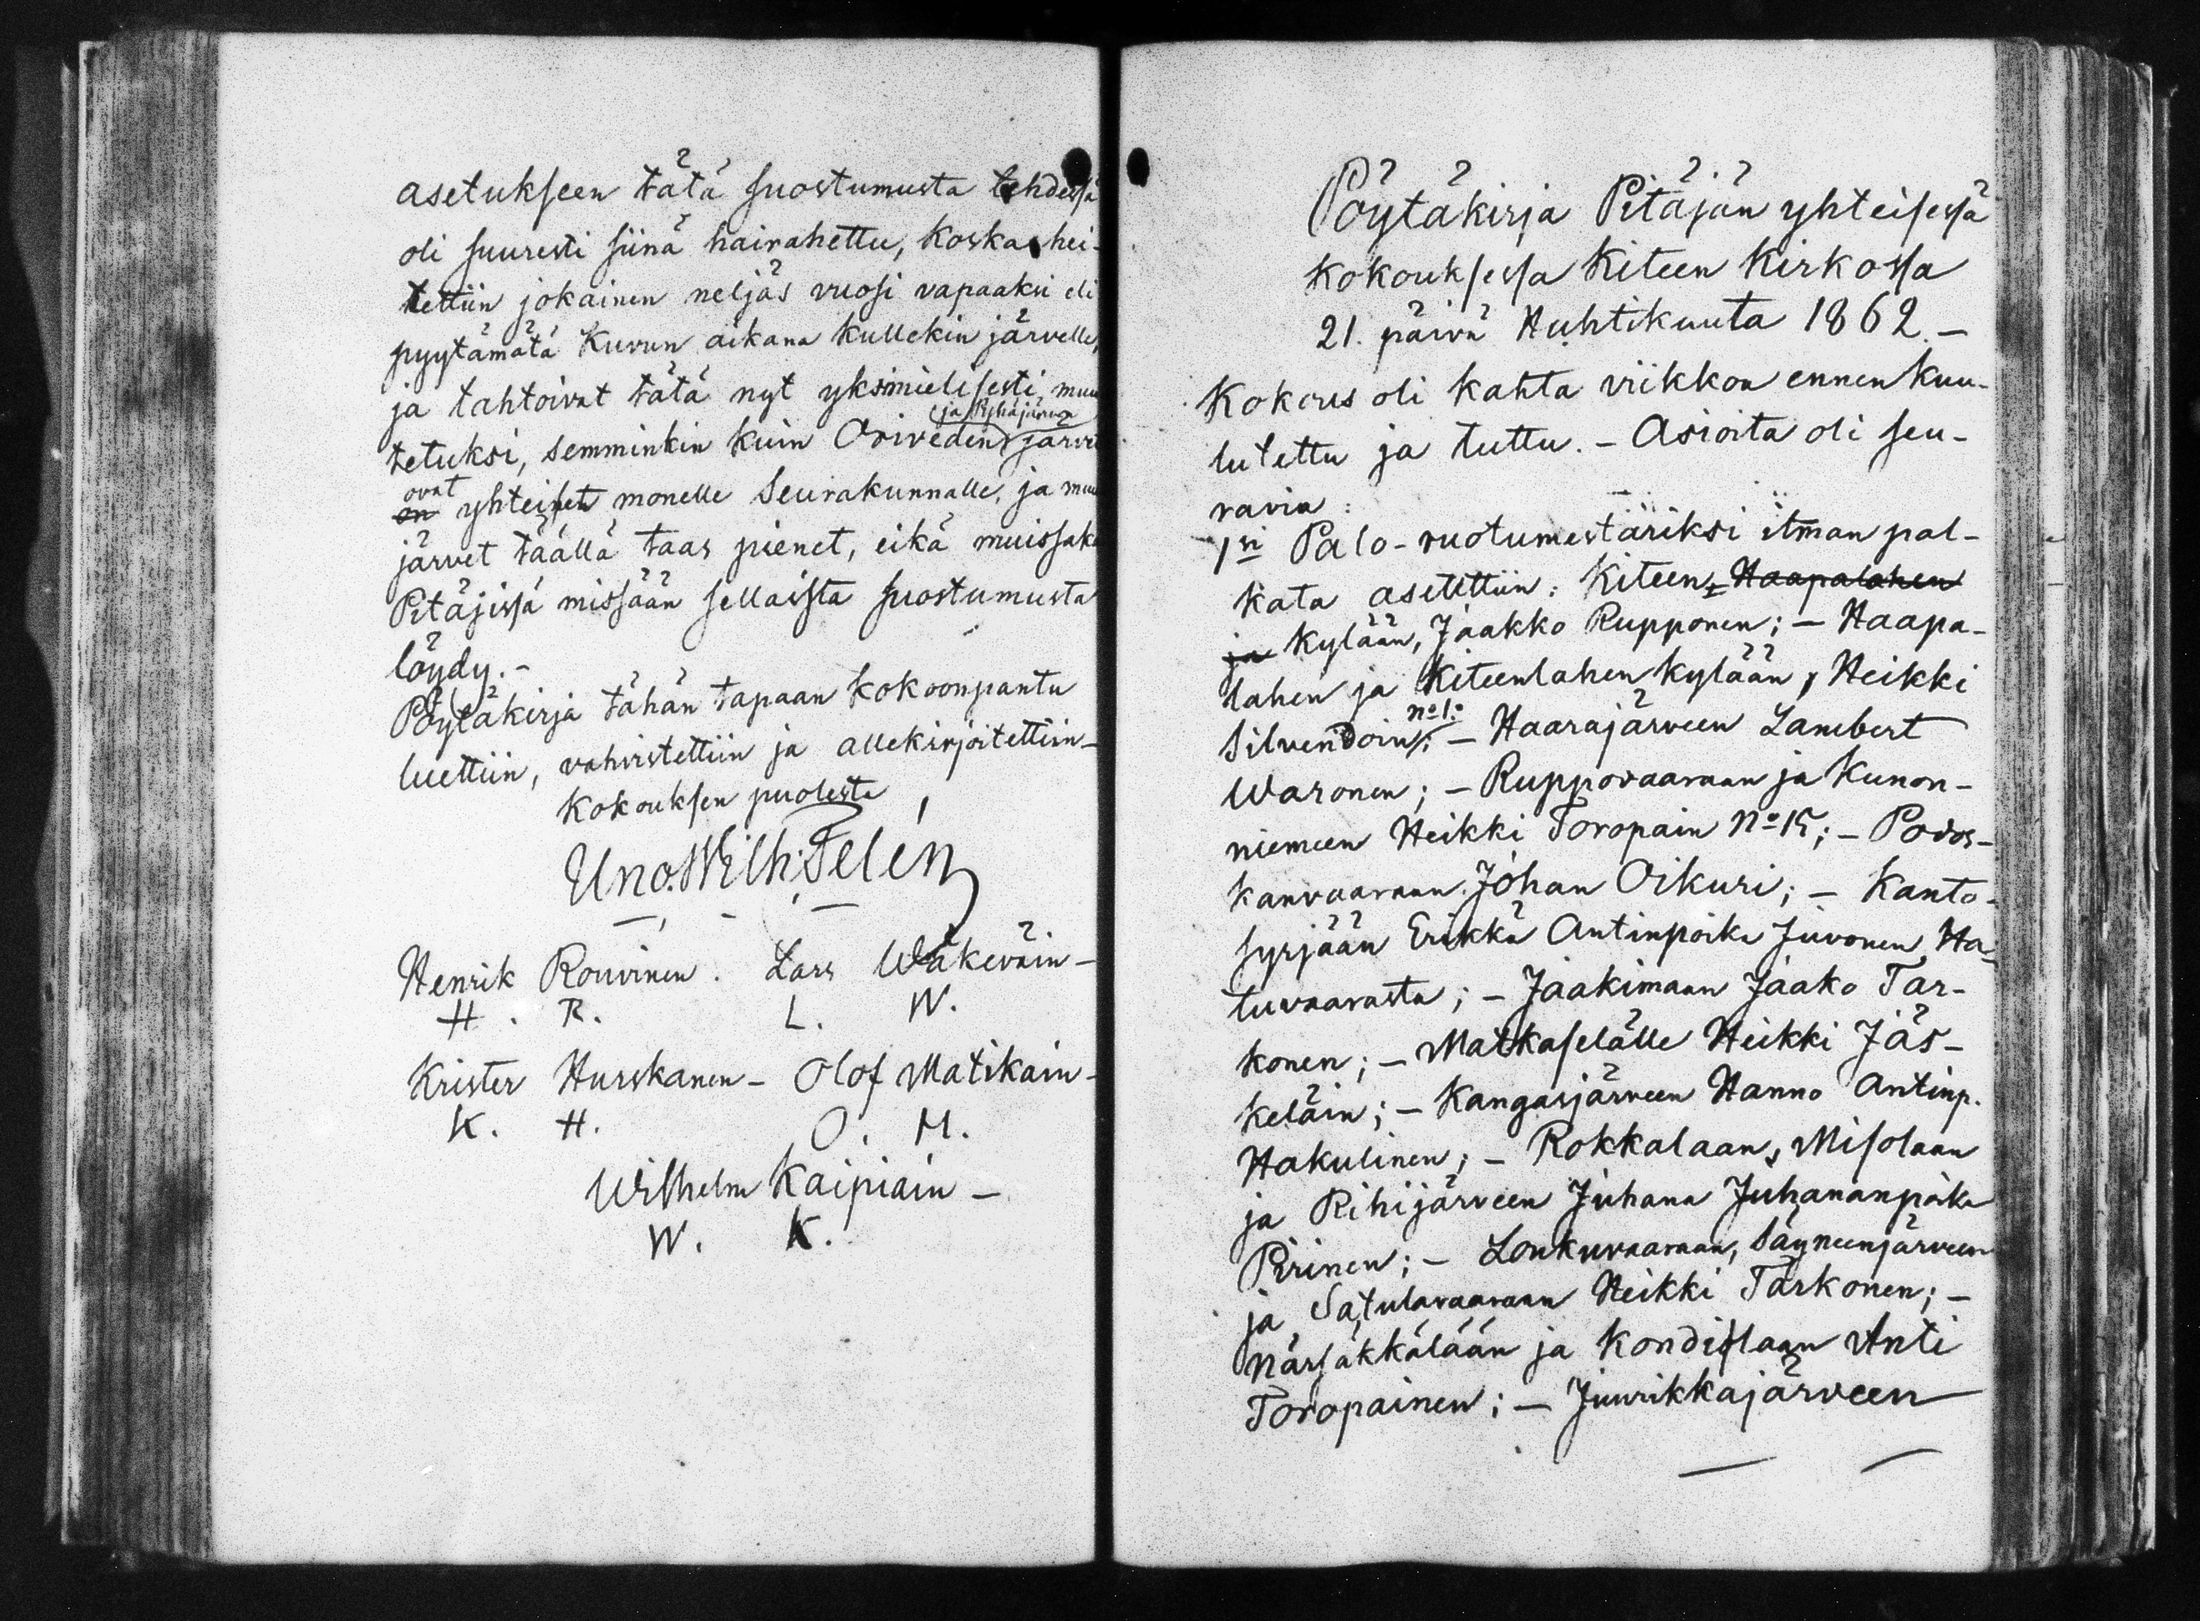 asetukseen tätä suostumusta tehdessä
oli suuresti siinä hairahettu, koska hei-
tettiin jokainen neljäs vuosi vapaaksi eli
pyytämätä Kuvun aikana kullekin järvelle,
ja tahtoivat tätä nyt yksimielisesti muu
(ja Pyhäjärven
tetuksi, semminkin kuin Oriveden järvi
ovat
on yhteiset monelle Seurakunnalle, ja muu
järvet täällä taas pienet, eikä muissaka
Pitäjissä missään sellaista suostumusta
löydy. -
Pöytäkirja tähän tapaan kokoonpantu
luettiin, vahvistettiin ja allekirjoitettiin -
Kokouksen puolesta
Uno Wilh: Telén
Henrik Rouvinen. Lars Wäkeväin -
H. R. L. W.
Krister Hurskanen - Olof Matikain -
K. H. O. M.
Wilhelm Kaipiain -
W. K.
Pöytäkirja Pitäjän yhteisessä
kokouksessa Kiteen Kirkossa
21. päivä Huhtikuuta 1862. -
Kokous oli kahta viikkoa ennen kuu-
lutettu ja tuttu. - Asioita oli seu-
ravia:
1si Palo-ruotumestäriksi ilman pal-
kata asetettiin: Kiteen Haapalahen
ja Kylään, Jaakko Rupponen; - Haapa-
lahen ja Kiteenlahen kylään, Heikki
No 1.
Silvendoin; - Haarajärveen Lambert
Waronen; - Ruppovaaraan ja Kunon-
niemeen Heikki Toropain No 15; - Povos-
kanvaaraan Johan Oikuri; - Kanto-
syrjään Erikki Antinpoika Juvonen Ha-
tuvaarasta; - Jaakimaan Jaako Tar-
konen; - Matkaselälle Heikki Jäs-
keläin; - Kangasjärveen Hanno Antinp.
Hakulinen; - Rokkalaan, Misolaan
ja Riihijärveen Juhana Juhananpoika
Piirinen; - Loukuvaaraan, Säyneenjärveen
ja Satulavaaraan Heikki Tarkonen; -
Närsäkkälään ja Kondislaan Anti
Toropainen; - Juurikkajärveen